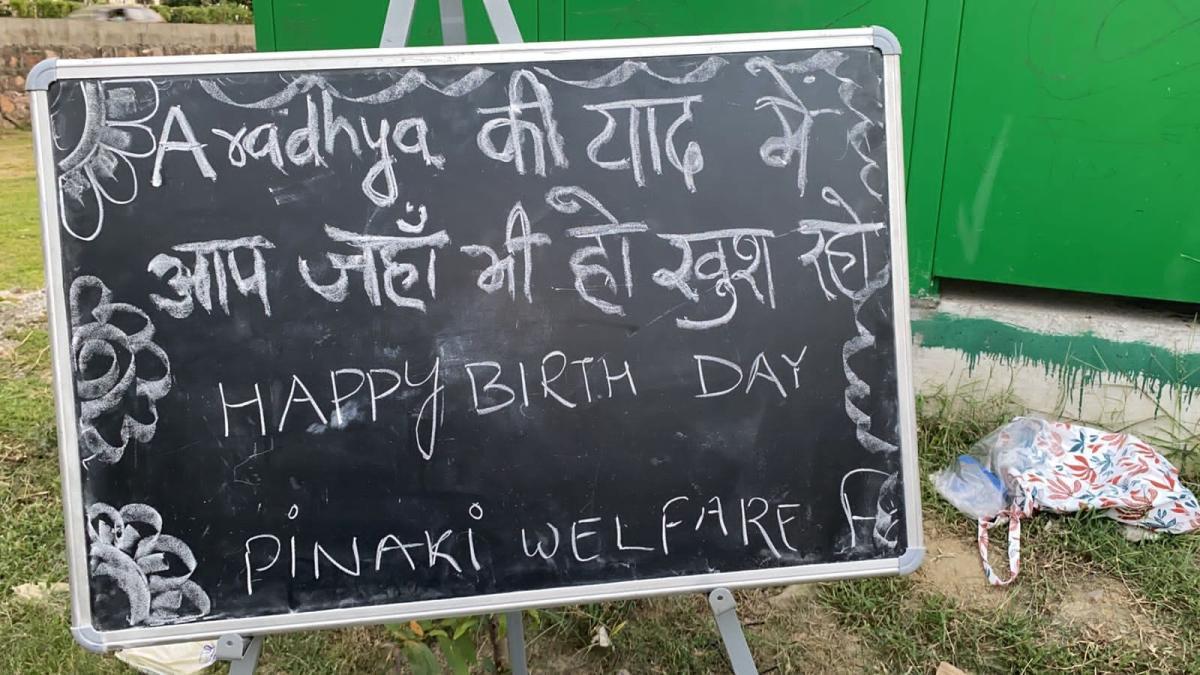 Aradhya की याद में
आप जहाँ भी हो खुश रहो
HAPPY BIRTH DAY
PINAKI WELFARE